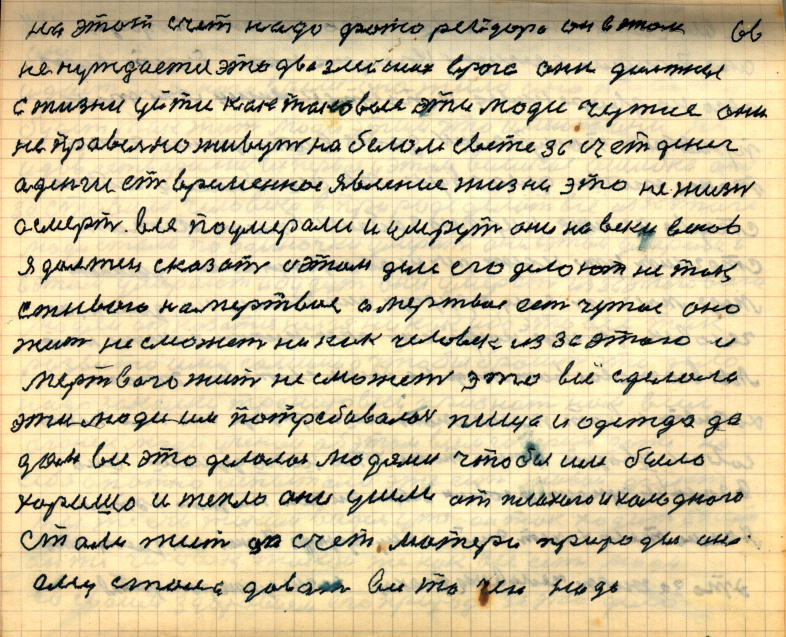 на этот счет надо фото он в этом 66
не нуждается это два злейших врага они должны
с жизни уйти как таковые эти люди чужие они
не правельно живут на белом свете за счет денег
а деньги ст временное явление жизни это не жизн
а смерт. все поумерали и умрут они на веки веков
я должен сказат о этом деле его делают не так
с живого на мертвое а мертвое ест чужое оно
жит не сможет ни как человек из за этого и
мертвого жит не сможет это всё сделала
эти люди им потребавалас пища и одежда да
дом все это делалос людями чтобы им было
харашо и тепло они ушли от плохого и холодного
стали жит за счет матери природы она
ему стала дават все то чего надо